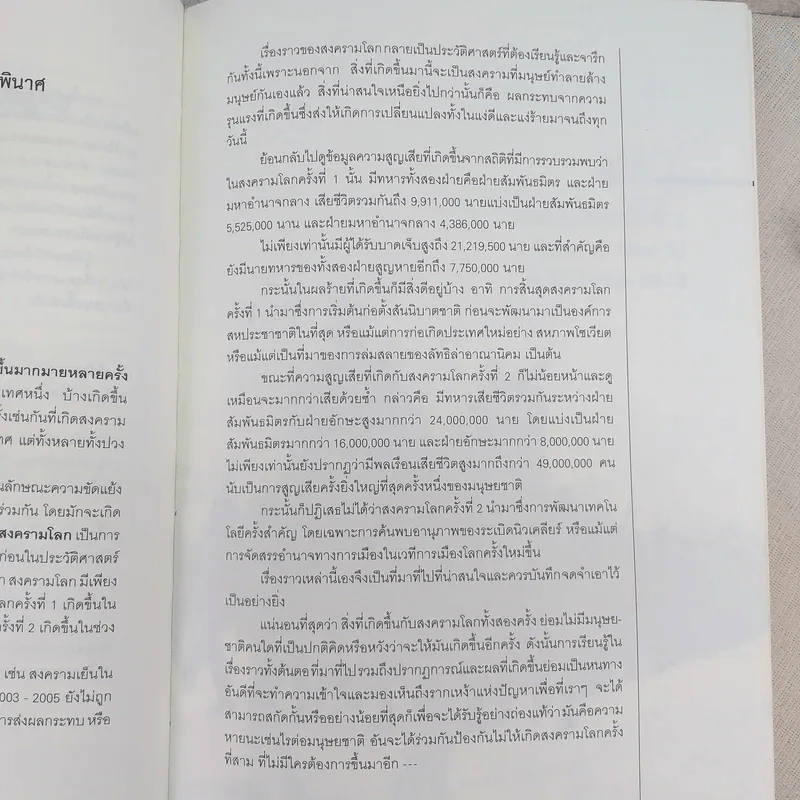 พินาศ
ขึ้นมากมายหลายครั้ง
เทศหนึ่ง บ้างเกิดขึ้น
เช่นกันที่เกิดสงคราม
แต่ทั้งหลายทั้งปวง
ลักษณะความขัดแย้ง
ร่วมกัน โดยมักจะเกิด
สงครามโลก เป็นการ
ก่อนในประวัติศาสตร์
สงครามโลก มีเพียง
โลกครั้งที่ 1 เกิดขึ้นใน
ครั้งที่ 2 เกิดขึ้นในช่วง
เช่น สงครามเย็นใน
003 - 2005 ยังไม่ถูก
การส่งผลกระทบ หรือ
เรื่องราวของสงครามโลก กลายเป็นประวัติศาสตร์ที่ต้องเรียนรู้และจารึก
กันทั้งนี้เพราะนอกจาก สิ่งที่เกิดขึ้นมานี้จะเป็นสงครามที่มนุษย์ทำลายล้าง
มนุษย์กันเองแล้ว สิ่งที่น่าสนใจเหนือยิ่งไปกว่านั้นก็คือ ผลกระทบจากความ
รุนแรงที่เกิดขึ้นซึ่งส่งให้เกิดการเปลี่ยนแปลงทั้งในแง่ดีและแง่ร้ายมาจนถึงทุก
วันนี้
ย้อนกลับไปดูข้อมูลความสูญเสียที่เกิดขึ้นจากสถิติที่มีการรวบรวมพบว่า
ในสงครามโลกครั้งที่ 1 นั้น มีทหารทั้งสองฝ่ายคือฝ่ายสัมพันธมิตร และฝ่าย
มหาอำนาจกลาง เสียชีวิตรวมกันถึง 9,911,000 นายแบ่งเป็นฝ่ายสัมพันธมิตร
5,525,000 นาน และฝ่ายมหาอำนาจกลาง 4,386,000 นาย
ไม่เพียงเท่านั้นมีผู้ได้รับบาดเจ็บสูงถึง 21,219,500 นาย และที่สำคัญคือ
ยังมีนายทหารของทั้งสองฝ่ายสูญหายอีกถึง 7,750,000 นาย
กระนั้นในผลร้ายที่เกิดขึ้นก็มีสิ่งดีอยู่บ้าง อาทิ การสิ้นสุดสงครามโลก
ครั้งที่ 1 นำมาซึ่งการเริ่มต้นก่อตั้งสันนิบาตชาติ ก่อนจะพัฒนามาเป็นองค์การ
สหประชาชาติในที่สุด หรือแม้แต่การก่อเกิดประเทศใหม่อย่าง สหภาพโซเวียต
หรือแม้แต่เป็นที่มาของการล่มสลายของลัทธิล่าอาณานิคม เป็นต้น
ขณะที่ความสูญเสียที่เกิดกับสงครามโลกครั้งที่ 2 ก็ไม่น้อยหน้าและดู
เหมือนจะมากกว่าเสียด้วยซ้ำ กล่าวคือ มีทหารเสียชีวิตรวมกันระหว่างฝ่าย
สัมพันธมิตรกับฝ่ายอักษะสูงมากกว่า 24,000,000 นาย โดยแบ่งเป็นฝ่าย
สัมพันธมิตรมากกว่า 16,000,000 นาย และฝ่ายอักษะมากกว่า 8,000,000 นาย
ไม่เพียงเท่านั้นยังปรากฏว่ามีพลเรือนเสียชีวิตสูงมากถึงกว่า 49,000,000 คน
นับเป็นการสูญเสียครั้งยิ่งใหญ่ที่สุดครั้งหนึ่งของมนุษยชาติ
กระนั้นก็ปฏิเสธไม่ได้ว่าสงครามโลกครั้งที่ 2 นำมาซึ่งการพัฒนาเทคโน
โลยีครั้งสำคัญ โดยเฉพาะการค้นพบอานุภาพของระเบิดนิวเคลียร์ หรือแม้แต่
การจัดสรรอำนาจทางการเมืองในเวทีการเมืองโลกครั้งใหม่ขึ้น
เรื่องราวเหล่านี้เองจึงเป็นที่มาที่ไปที่น่าสนใจและควรบันทึกจดจำเอาไว้
เป็นอย่างยิ่ง
แน่นอนที่สุดว่า สิ่งที่เกิดขึ้นกับสงครามโลกทั้งสองครั้ง ย่อมไม่มีมนุษย-
ชาติคนใดที่เป็นปกติคิดหรือหวังว่าจะให้มันเกิดขึ้นอีกครั้ง ดังนั้นการเรียนรู้ใน
เรื่องราวทั้งต้นตอ ที่มาที่ไป รวมถึงปรากฏการณ์และผลที่เกิดขึ้นย่อมเป็นหนทาง
อันดีที่จะทำความเข้าใจและมองเห็นถึงรากเหง้าแห่งปัญหาเพื่อที่เราๆ จะได้
สามารถสกัดกั้นหรืออย่างน้อยที่สุดก็เพื่อจะได้รับรู้อย่างถ่องแท้ว่ามันคือความ
หายนะเช่นไรต่อมนุษยชาติ อันจะได้ร่วมกันป้องกันไม่ให้เกิดสงครามโลกครั้ง
ที่สาม ที่ไม่มีใครต้องการขึ้นมาอีก ---